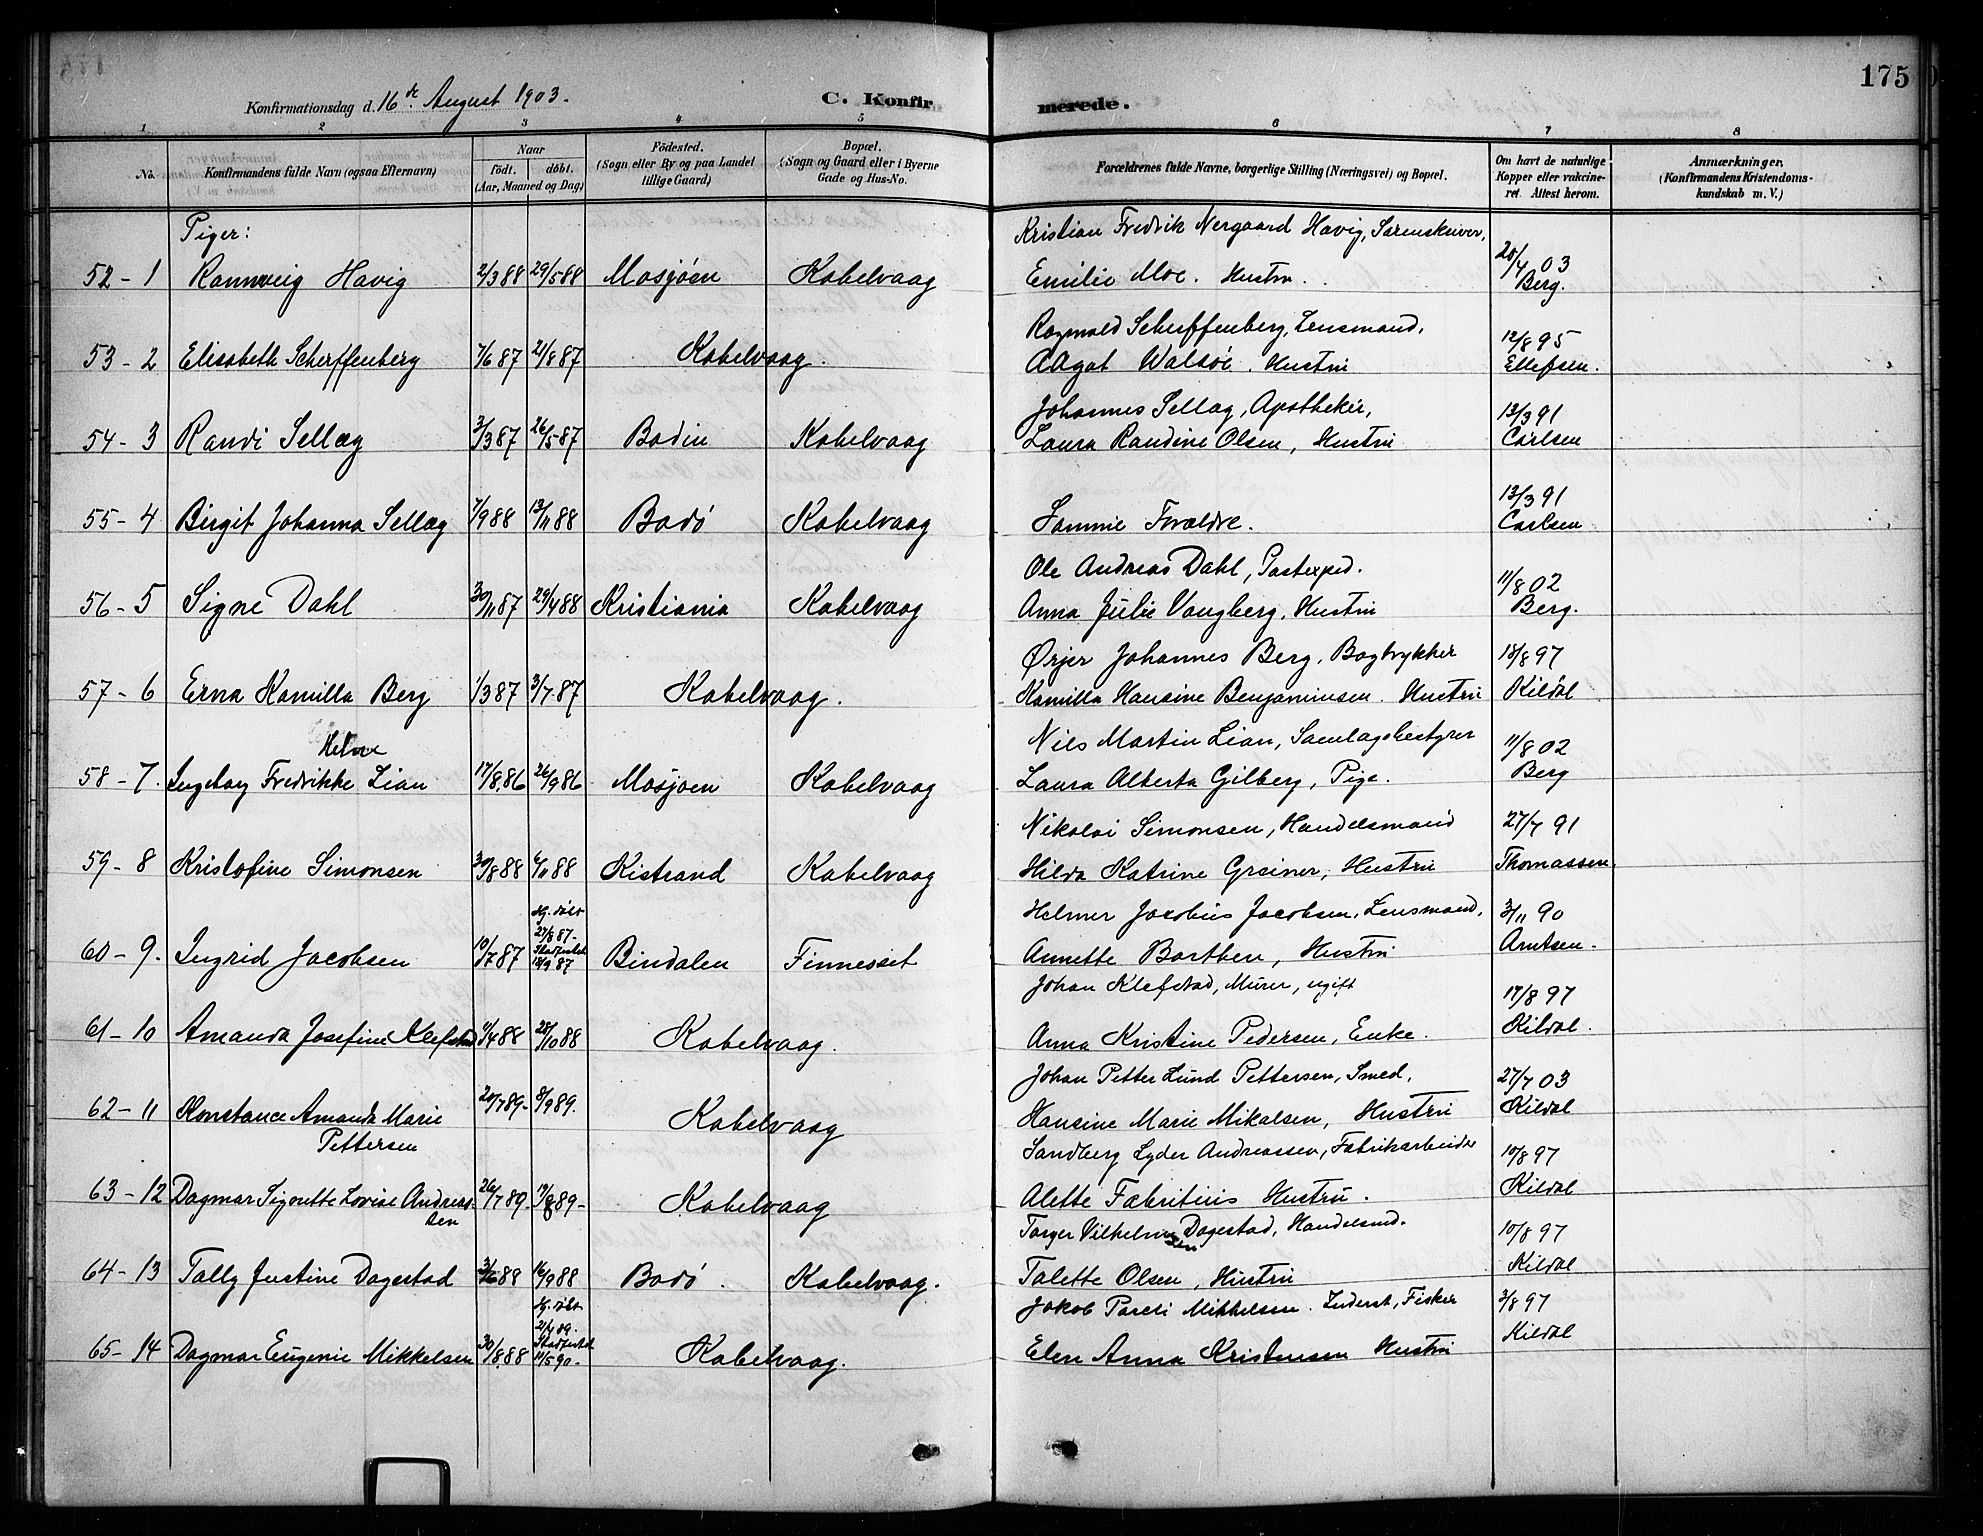 175
Konfirmationsdag d. 16de August 1903.
C. Konfir merede.
1 2 3 4 5 6 7 8
No.
Konfirmandens fulde Navn (ogsaa Efternavn)
Naar
født. døbt.
(Aar, Maaned og Dag)
Fødested.
(Sogn eller By og paa Landet
tillige Gaard)
Bopæl.
(Sogn og Gaard eller i Byerne
Gade og Hus-No.
Forældrenes fulde Navne, borgerlige Stilling (Næringsvei) og Bopæl.
Om havt de naturlige
Kopper eller vakcine-
ret. Attest herom.
Anmærkninger,
(Konfirmandens Kristendoms-
kundskab m. V.)
Piger:
Kristian Fredrik Nergaard Havig, Sorenskriver,
52 - 1 Rannveig Havig 2/3 88 29/5 88 Mosjøen Kabelvaag Emilie Moe. Hustru. 20/4 03 Berg.
Ragnvald Scherffenberg, Lensmand,
53 - 2 Elisabeth Scherffenberg 7/6 87 21/8 87 Kabelvaag. Aagot Walsøe. Hustru 12/8 95 Ellefsen.
Johannes Sellæg, Apotheker,
54 - 3 Randi Sellæg 3/3 87 26/5 87 Bodin Kabelvaag Laura Randine Olsen, Hustru 13/3 91 Carlsen
55 - 4 Birgit Johanna Sellæg 7/9 88 13/11 88 Bodø Kabelvaag Samme Forældre. 13/3 91 Carlsen
Ole Andreas Dahl, Postexped.
56 - 5 Signe Dahl 30/11 87 29/4 88 Kristiania Kabelvaag Anna Julie Vangberg, Hustru 11/8 02 Berg.
Ørjer Johannes Berg, Bogtrykker
57 - 6 Erna Kamilla Berg 1/3 87 3/7 87 Kabelvaag. Kamilla Hansine Benjaminsen. Hustru 18/8 97 Kildal
Nils Martin Lian, Samlagsbestyrer
58 - 7. Ingeborg Fredrikke Lian 17/8 86 26/9 86 Mosjøen Kabelvaag Laura Alberta Gilberg, Pige. 11/8 02 Berg
Nikolai Simonsen, Handelsmand
59 - 8 Kristofine Simonsen 30/8 88 /11 88 Kistrand Kabelvaag Hilda Katrine Greiner, Hustru 27/7 91 Thomassen.
Helmer Jacobus Jacobsen, Lensmand,
60 - 9. Ingrid Jacobsen 10/7 87 Hj. døbt 27/8 87 - Stadfestet 18/9 87 Bindalen Finnesset Annette Barthen, Hustru 3/11 90 Arntsen.
Johan Klefstad, Murer, ugift
61 - 10 Amanda Josefine Klefstad /4 88 28/10 88 Kabelvaag. Anna Kristine Pedersen, Enke. 17/8 97 Kildal.
Johan Petter Lund Pettersen, Smed,
62 - 11 Konstance Amanda Marie Pettersen 20/7 89 - 8/9 89. Kabelvaag Hansine Marie Mikalsen, Hustru 27/7 03 Kildal
Sandberg Lyder Andreassen, Fabrikarbeider
63 - 12 Dagmar Signette Lovise Andreassen 26/7 89 - 89 - Kabelvaag Alette Fabritius Hustru. 10/8 97 Kildal
Torger Vilhelmsen Dagestad, Handelsmd.
64 - 13 Tally Justine Dagestad 3/6 88 16/9 88 Bodø. Kabelvaag. Talette Olsen, Hustru 10/8 97 Kildal
Jakob Pareli Mikkelsen. Inderst, Fisker
65 - 14 Dagmar Eugenie Mikkelsen 30/8 88 Hj. døbt 89. Stadfestet 11/5 90 - Kabelvaag. Elen Anna Kristensen Hustru 3/8 97 Kildal